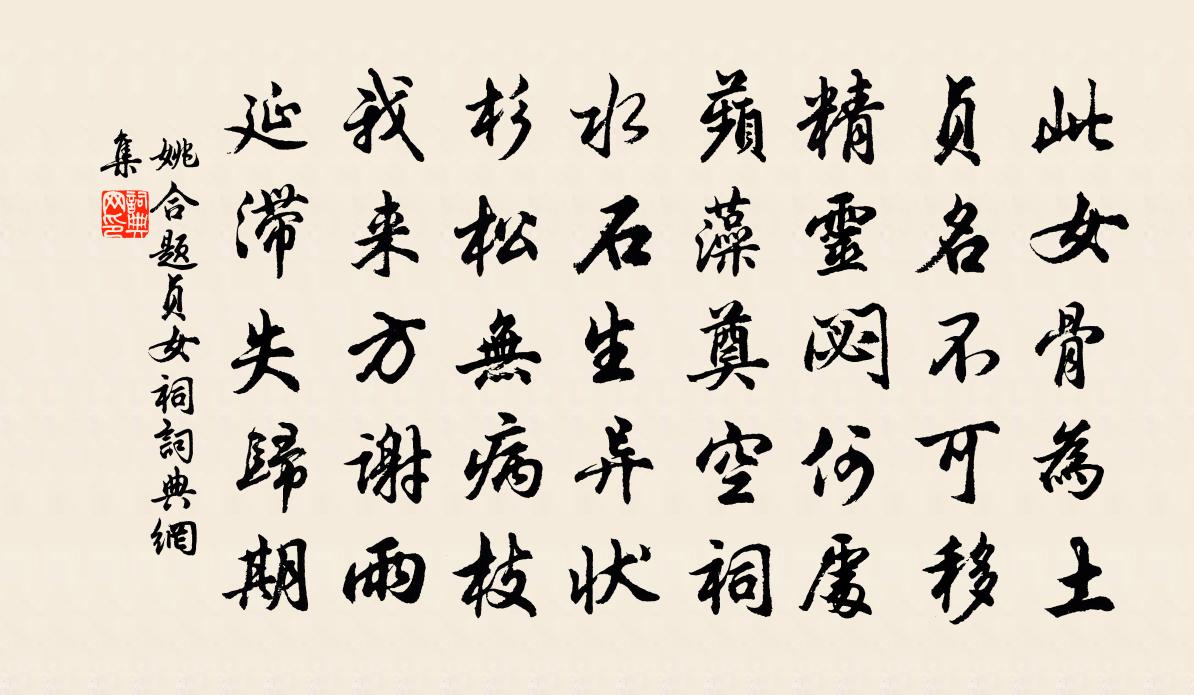 此女骨為土
貞名不可移
精靈閟何處
蘋藻奠空祠
水石生异狀
杉松無病枝
我来方謝雨
延滯失歸期
姚合题貞女祠詞典網
集
詞典
网印